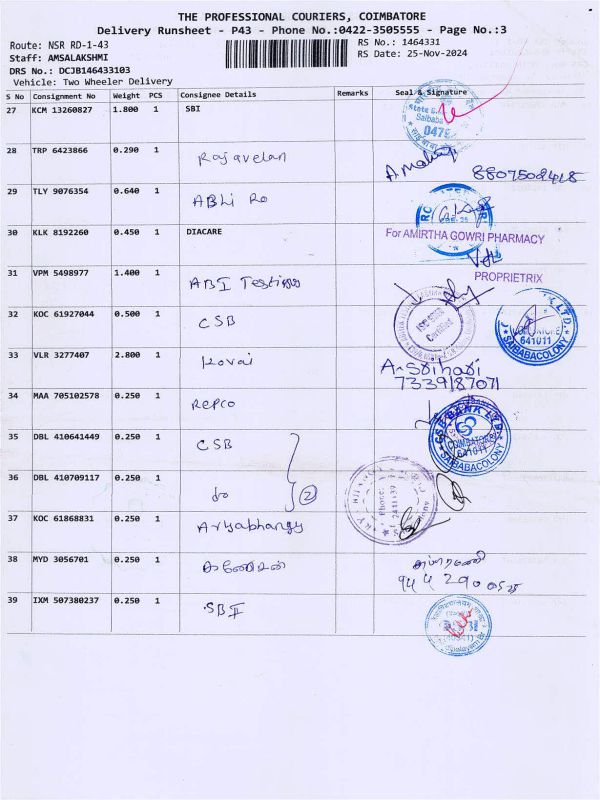 THE PROFESSIONAL COURIERS, COIMBATORE
Delivery Runsheet - P43 - Phone No.:0422-3505555 - Page No.:3
Route: NSR RD-1-43 RS No.: 1464331
Staff: AMSALAKSHMI RS Date: 25-Nov-2024
DRS No.: DCJB146433103
Vehicle: Two Wheeler Delivery
S No Consignment No Weight PCS Consignee Details Remarks Seal & Signature
27 KCM 13260827 1.800 1 SBI
Saibaba
28 TRP 6423866 0.290 1 Rajavelan
8807508415
29 TLY 9076354 0.640 1 ABhi Ro
30 KLK 8192260 0.450 1 DIACARE For AMIRTHA GOWRI PHARMACY
PROPRIETRIX
31 VPM 5498977 1.400 1 ABI Testings
32 KOC 61927044 0.500 1 CSB
Certified
641011
SAIBABACOLONY
33 VLR 3277407 2.800 1 Kovai A-Srihari
7339187071
34 MAA 705102578 0.250 1 Repco
CSB BANK LTD
COIMBATORE
641011
SAIBABACOLONY
35 DBL 410641449 0.250 1 CSB
36 DBL 410709117 0.250 1 do 2
Phone:
37 KOC 61868831 0.250 1
38 MYD 3056701 0.250 1 கணேசன்
39 IXM 507380237 0.250 1 SBI